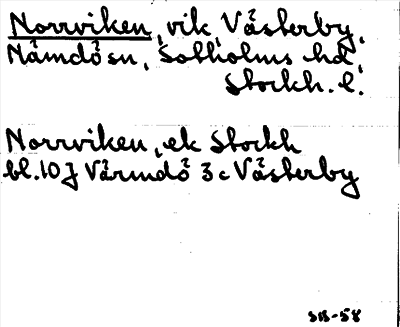 Norrviken, vik, Västerby,
Nämdö sn, Sotholms hd,
Stockh. l.
Norrviken, ek Stockh
bl. 10 J Värmdö 3 c Västerby
SB-58